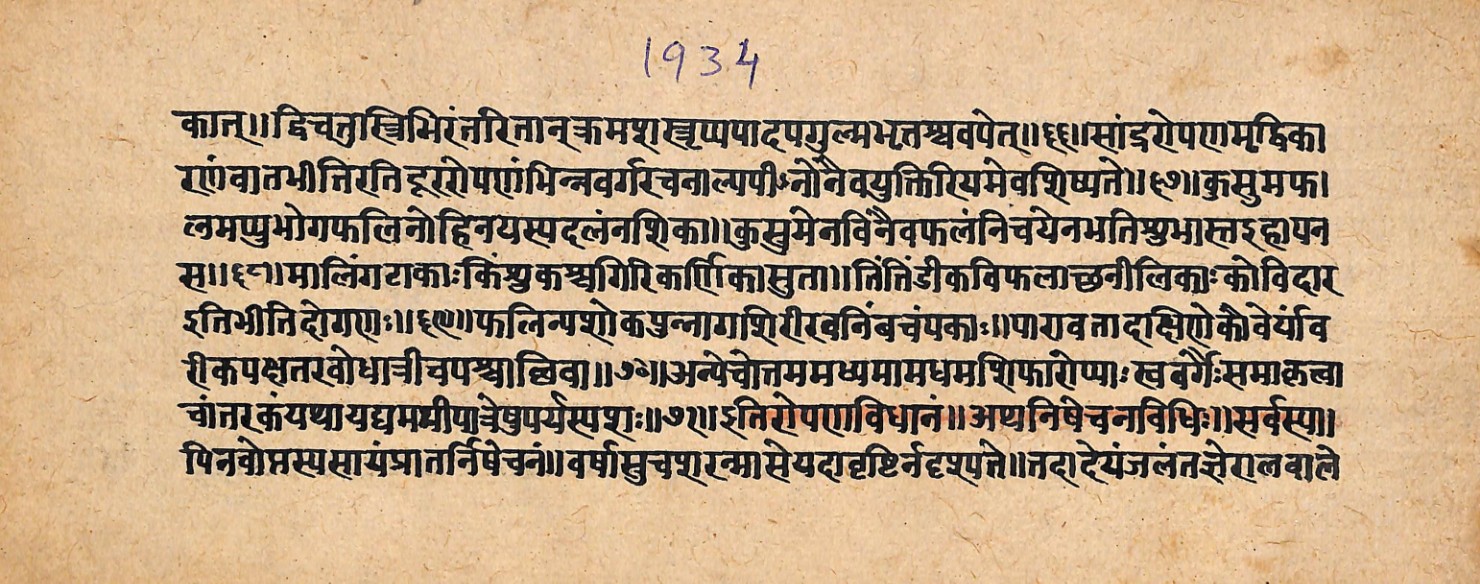 1934
कात्॥द्विचतुास्त्रिभिरंतरितान्क्रमशस्त्रृप्यपादपगुल्मभृतश्चवपेत्॥६६॥सांद्ररोपणमृद्विका
रणंवातभीतिरतिदूररोपणंभिन्नवर्गरचनाल्पपीऽनोनैवयुक्तिरियमेवशिष्यते॥६७॥कुसुमफ।
लमप्युभोगफलिनोहिनयस्यदलंनशिका॥कुसुमेनविंनैवफलंनिचयेनभतिशुभास्तइहापन
स॥६८॥मालिंगटाकाःकिंशुकश्चगिरिकर्णिकासुता॥तिंतिंडीकविफलाच्छनीलिकाःकोविदार
इतिभीतिदोगणः॥६९॥फलिन्यशोकपुन्नागशिरीरवनिंबचंपकाः॥पारावतादक्षिणेकौवेर्यांव
रीकपक्षतरवोधात्रीचपश्चाछिवा॥७०॥अन्येचोत्तममध्यमामधमशिफारोप्याःस्ववर्गैःसमाकृत्वा
चांतरकंयथायद्यममीपात्रेषुपर्यस्यशः॥७१॥इतिरोपणविधानं॥अथनिषेचनविधिः॥सर्वस्या।
पिनवोप्तस्यसायंप्रातर्निषेचनं॥वर्षासुचशरन्मासेयदावृष्टिर्नदृश्यते॥तदादेयंजलंतज्ञैरालवाले